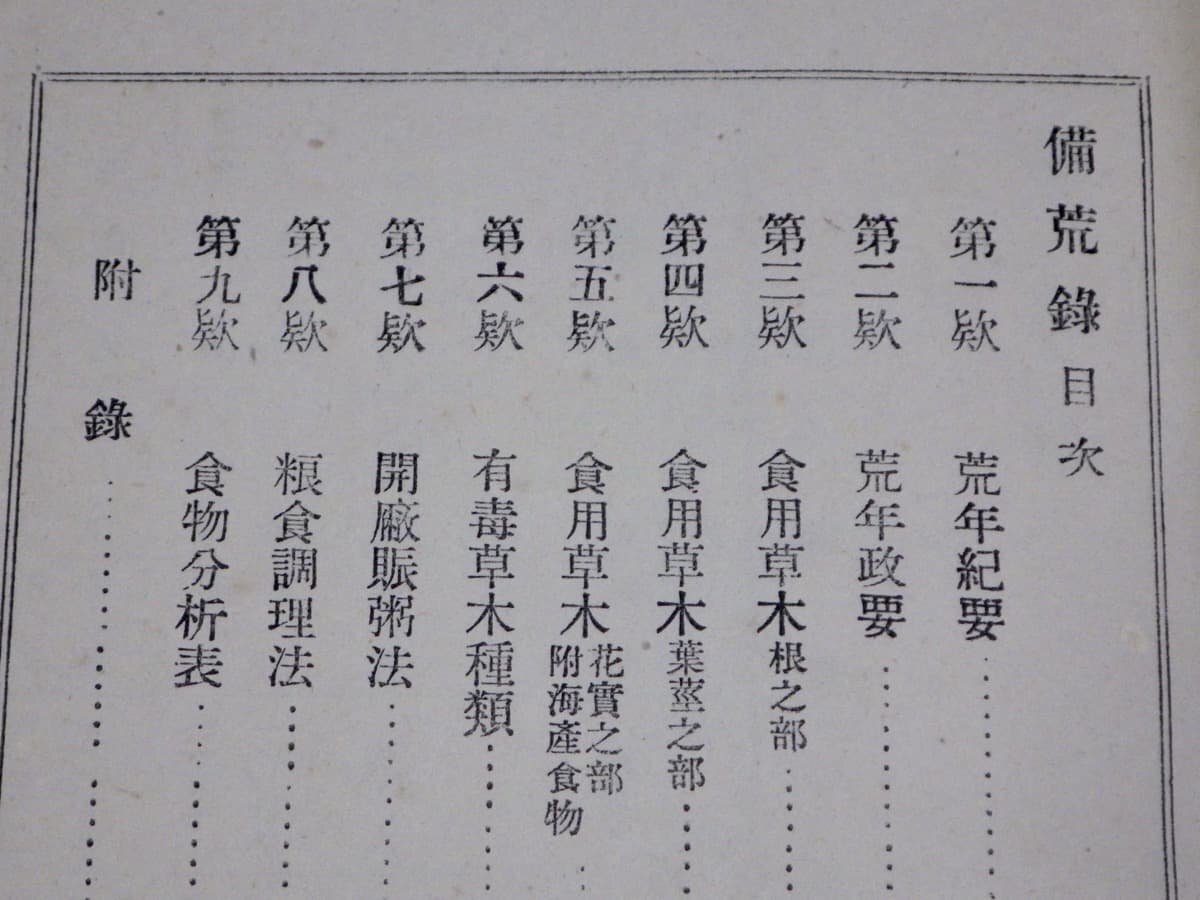 備荒錄目次
第一欵 荒年紀要
第二欵 荒年政要
第三欵 食用草木根之部
第四欵 食用草木葉莖之部
第五欵 食用草木花實之部
附海產食物
第六欵 有毒草木種類
第七欵 開廠賑粥法
第八欵 粮食調理法
第九欵 食物分析表
附錄